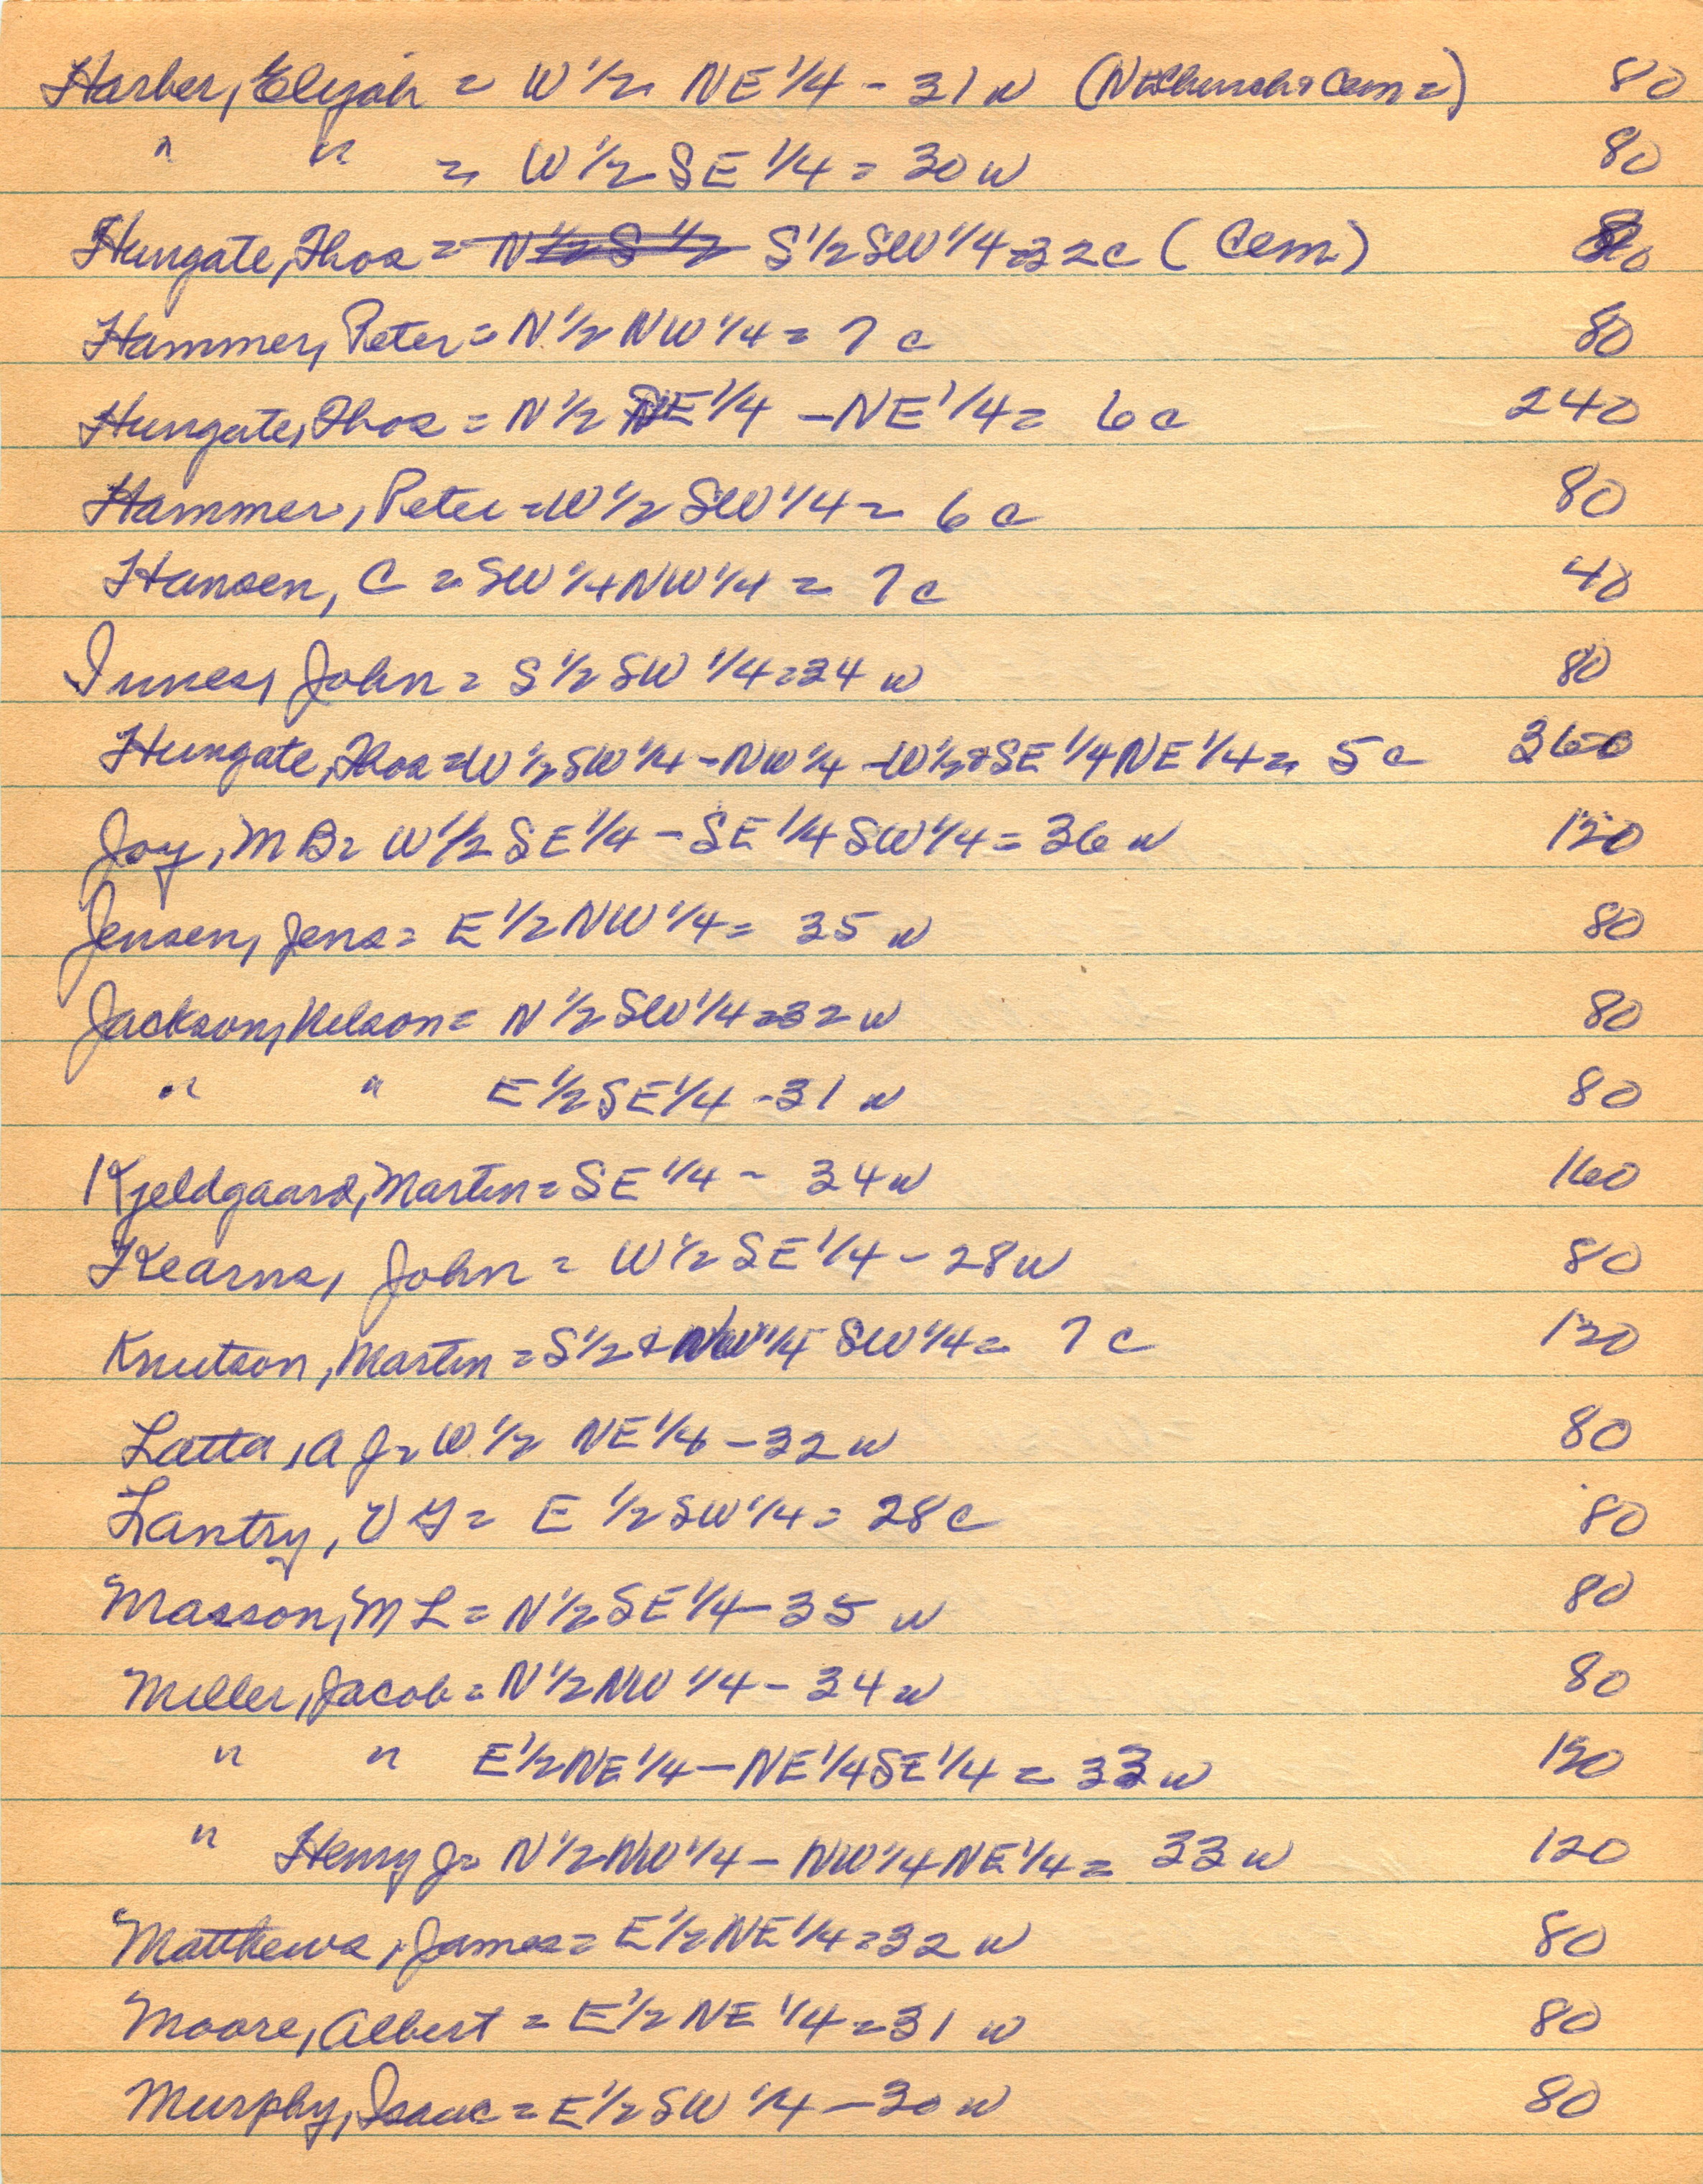 Harber, Elijah = W 1/2 NE 1/4 - 31 w (N Church & Cem =) 80
" " = W 1/2 SE 1/4 = 30 w 80
Hungate, Thos = N 1/2 S 1/2 S 1/2 SW 1/4 = 32 c (Cem) 80
Hammer, Peter = N 1/2 NW 1/4 = 7 c 80
Hungate, Thos = N 1/2 SE 1/4 - NE 1/4 = 6 c 240
Hammer, Peter = W 1/2 SW 1/4 = 6 c 80
Hansen, C = SW 1/4 NW 1/4 = 7 c 40
Innes, John = S 1/2 SW 1/4 = 34 w 80
Hungate, Thos = W 1/2 SW 1/4 - NW 1/4 - W 1/2 & SE 1/4 NE 1/4 = 5 c 360
Joy, M B = W 1/2 SE 1/4 - SE 1/4 SW 1/4 = 36 w 120
Jensen, Jens = E 1/2 NW 1/4 = 35 w 80
Jackson, Nelson = N 1/2 SW 1/4 = 32 w 80
" " E 1/2 SE 1/4 - 31 w 80
Kjeldgaard, Martin = SE 1/4 - 34 w 160
Kearns, John = W 1/2 SE 1/4 - 28 w 80
Knutson, Martin = S 1/2 & NW 1/4 SW 1/4 = 7 c 120
Latta, A J = W 1/2 NE 1/4 - 32 w 80
Lantry, V G = E 1/2 SW 1/4 = 28 c 80
Masson, M L = N 1/2 SE 1/4 - 35 w 80
Miller, Jacob = N 1/2 NW 1/4 - 34 w 80
" " E 1/2 NE 1/4 - NE 1/4 SE 1/4 = 33 w 120
" Henry J = N 1/2 NW 1/4 - NW 1/4 NE 1/4 = 33 w 120
Matthews, James = E 1/2 NE 1/4 = 32 w 80
Moore, Albert = E 1/2 NE 1/4 = 31 w 80
Murphy, Isaac = E 1/2 SW 1/4 - 30 w 80